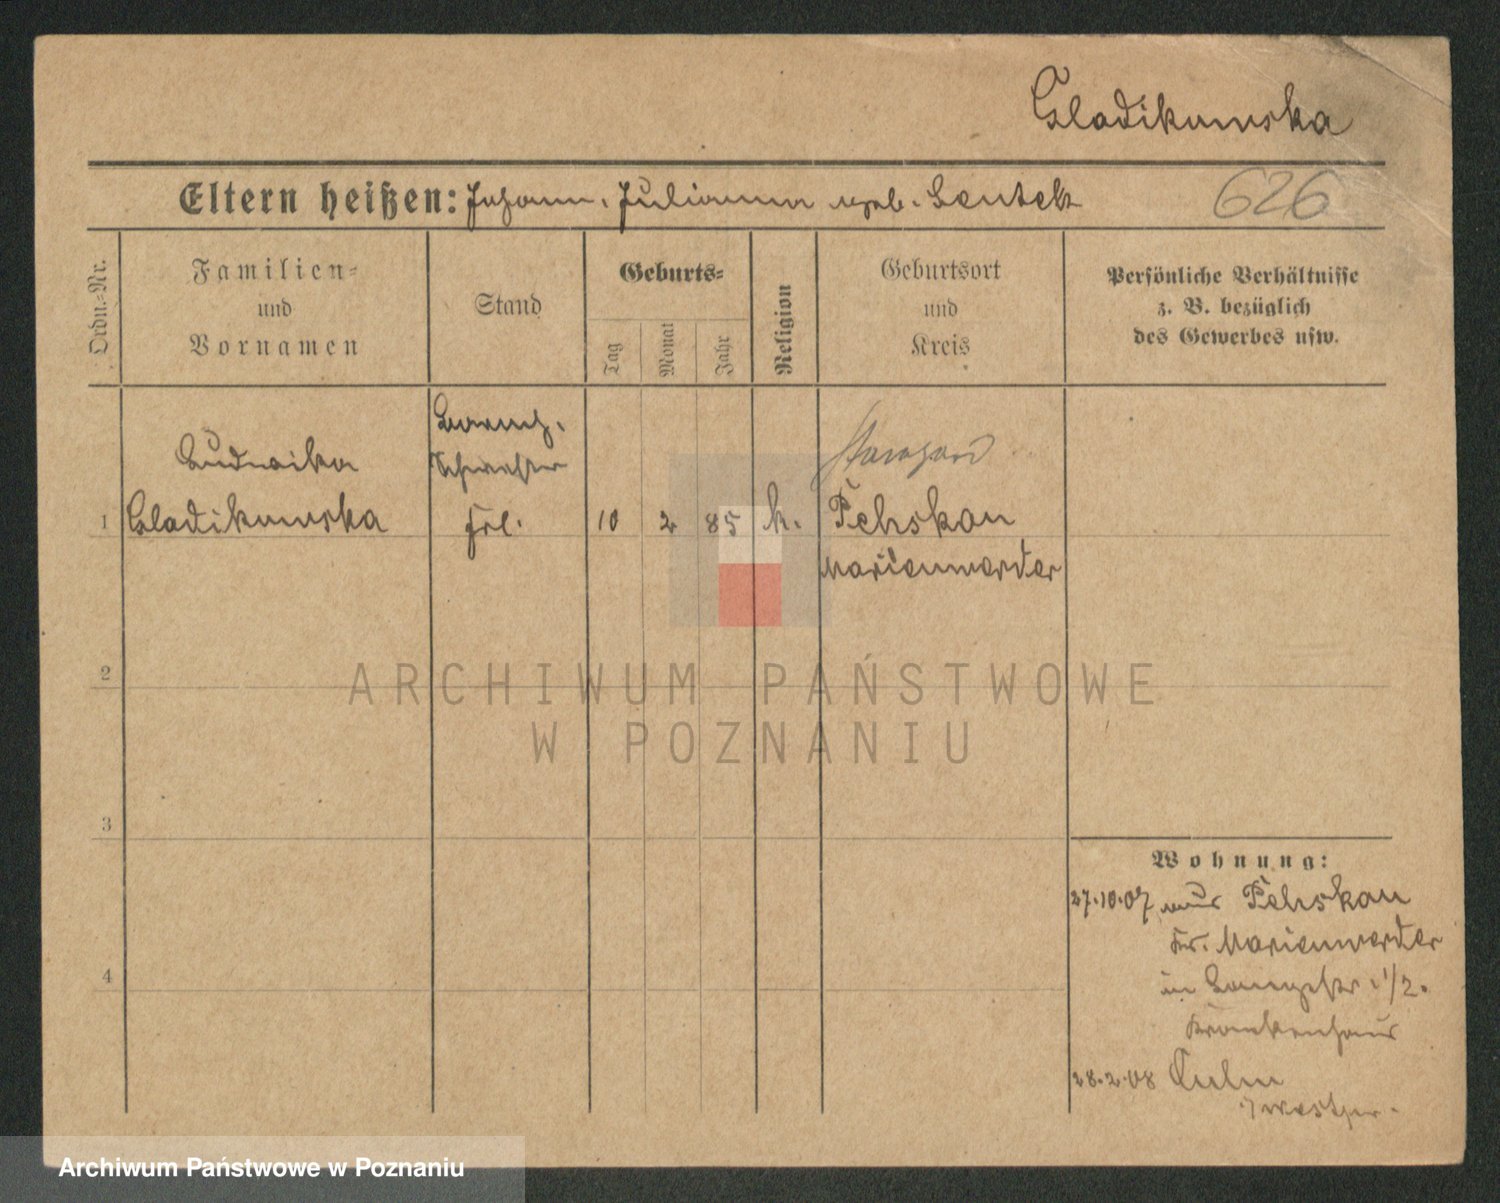 Gladikowska
Eltern heißen: Johann, Julianna geb. Lentek
626
Ordn.-Nr.
Familien-
und
Vornamen
Stand
Geburts-
Tag
Monat
Jahr
Religion
Geburtsort
und
Kreis
Persönliche Verhältnisse
z. B. bezüglich
des Gewerbes usw.
Barmh.
Schwester
Frl.
Ludwika
1 Gladikowska
10 2 85 k.
Stargard
Pehskau
Marienwerder
2
3
4
Wohnung:
27.10.07 aus Pehskau
Kr. Marienwerder
in Langestr. 1/2.
Krankenhaus
28.2.08 Culm
Westpr.
ARCHIWUM PAŃSTWOWE
W POZNANIU
Archiwum Państwowe w Poznaniu